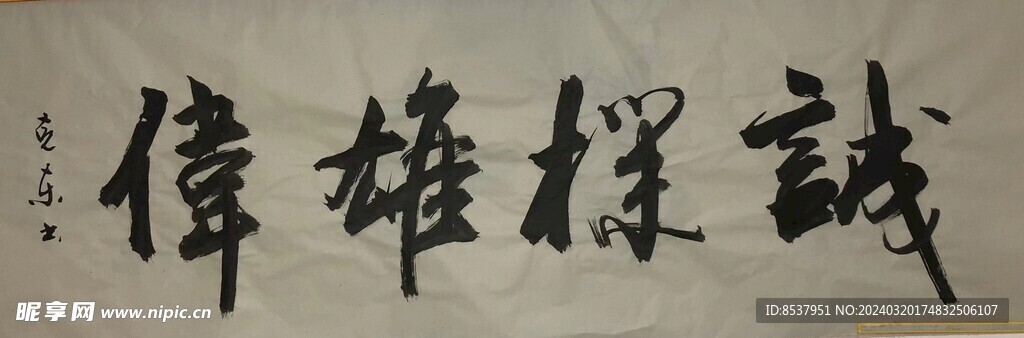 誠樸雄偉
克东书
昵享网 www.nipic.cn
ID:8537951 NO:20240320174832506107